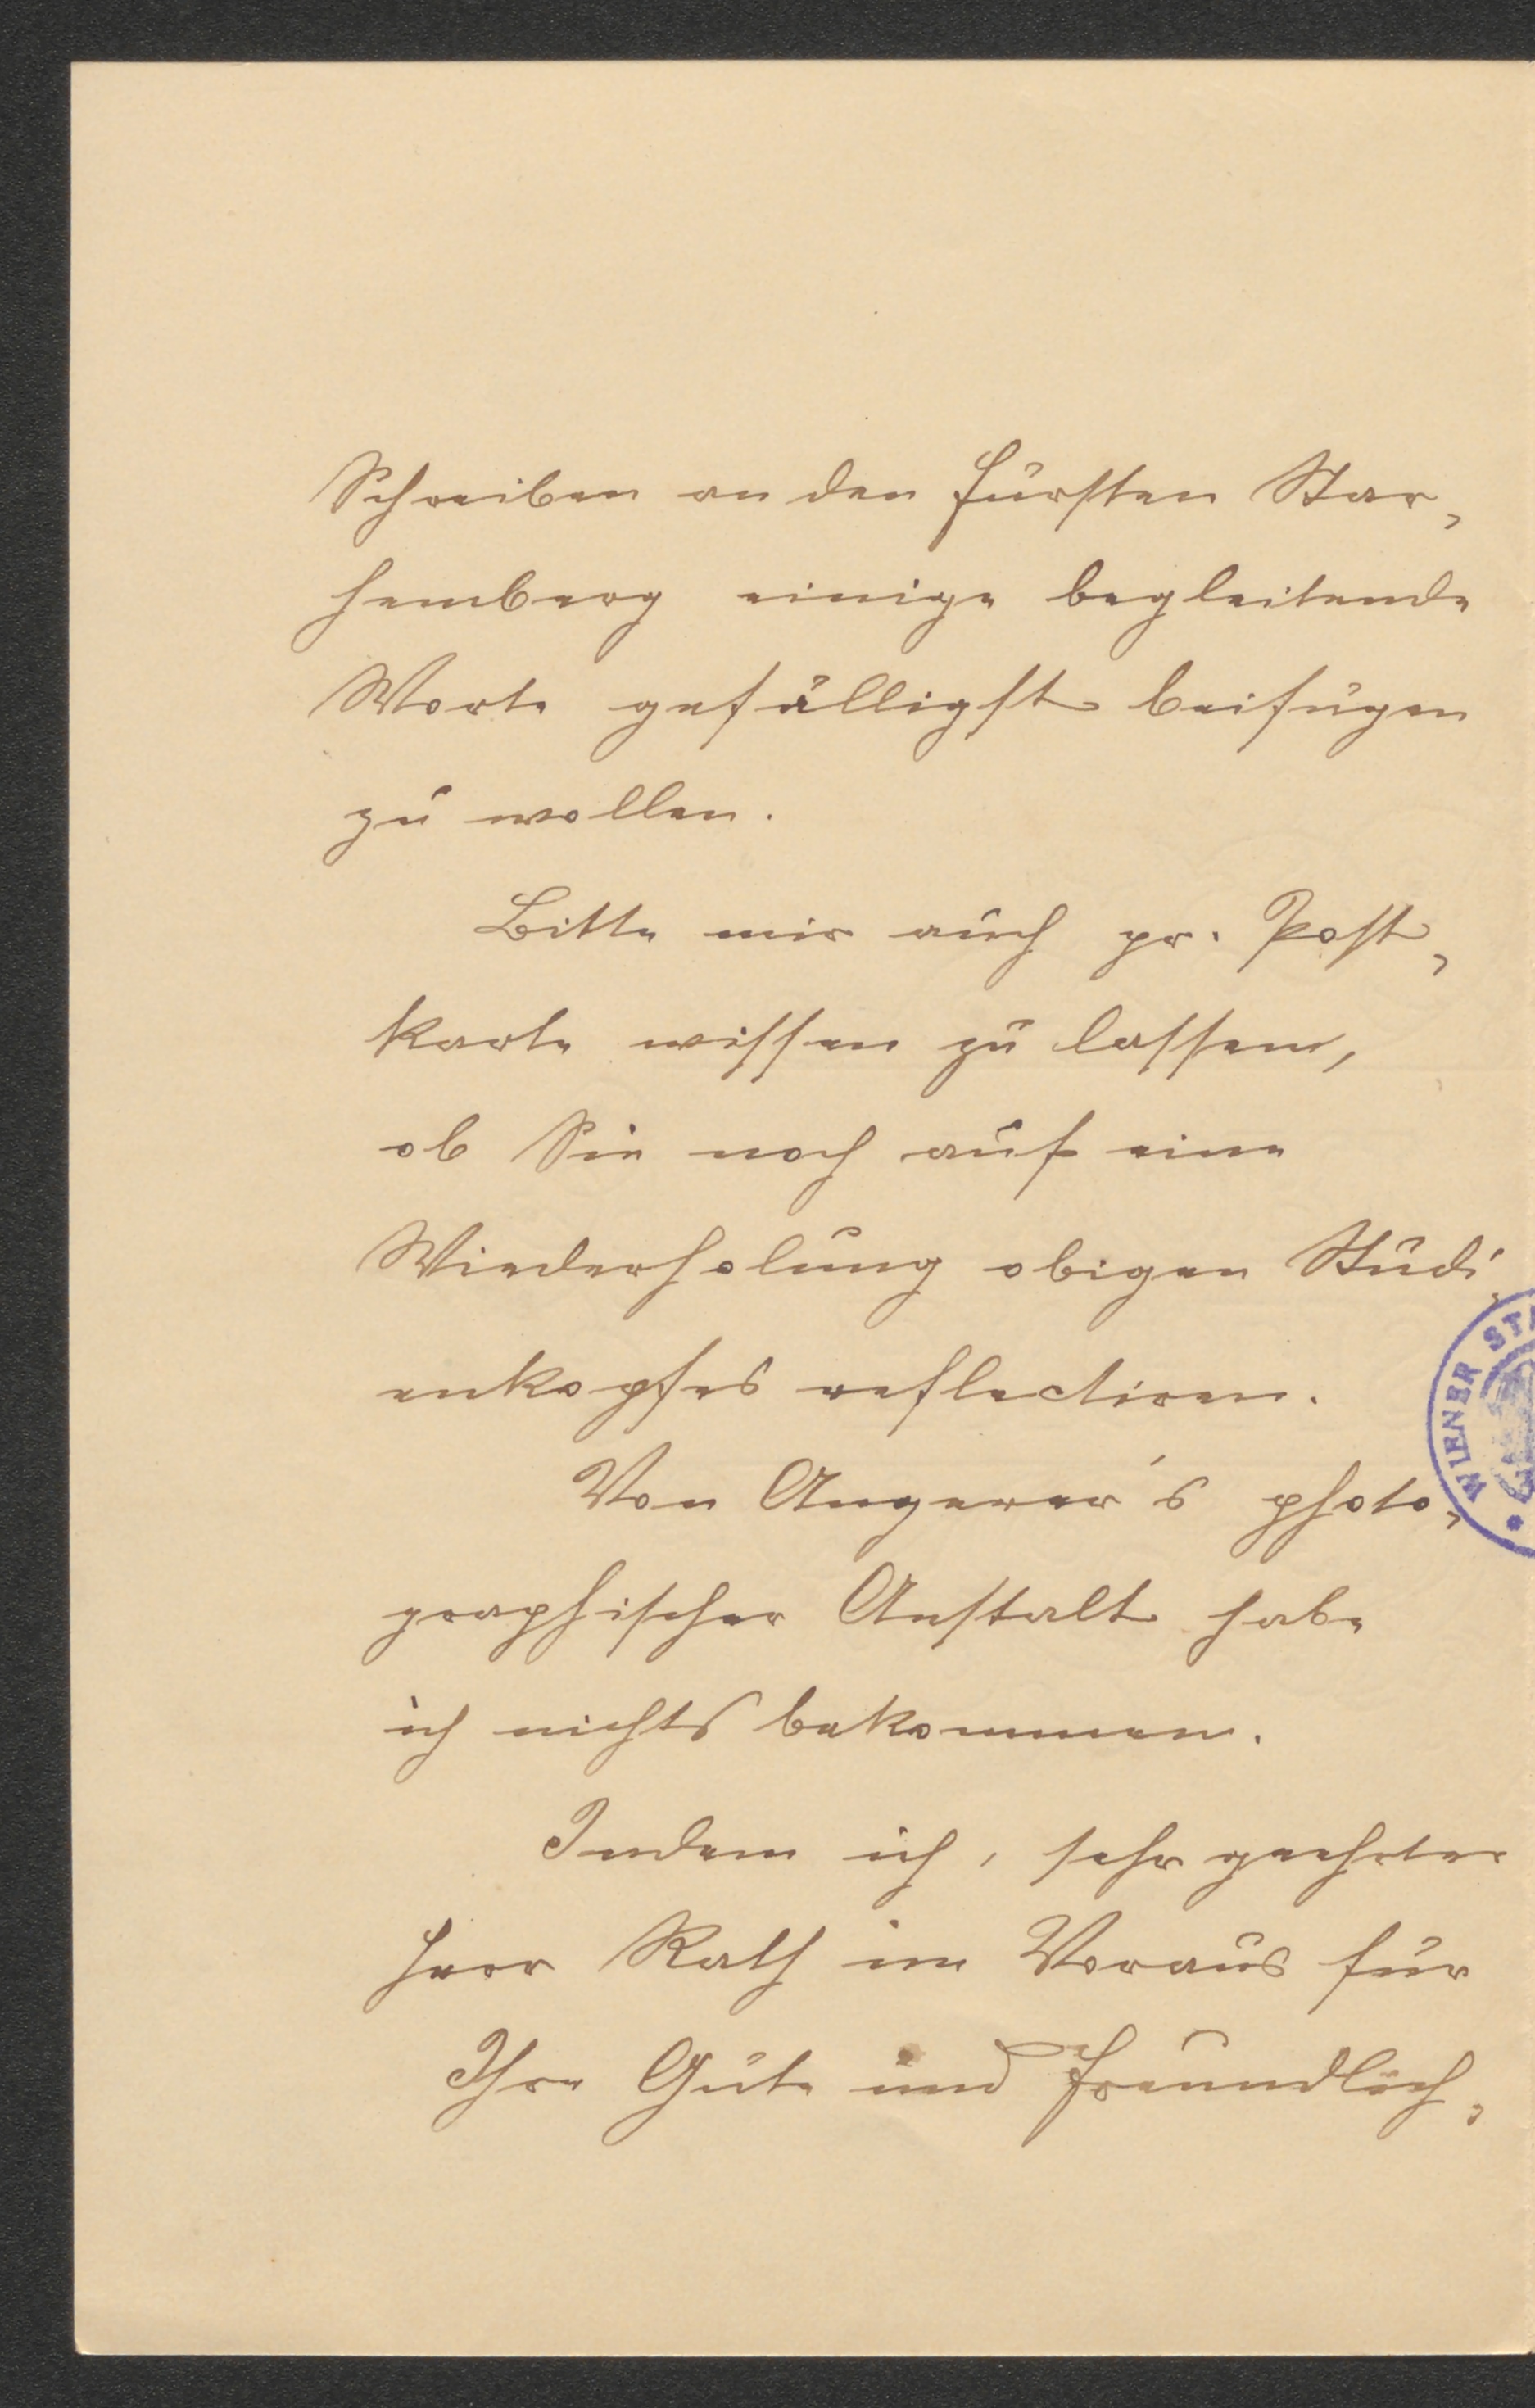 Schreiben an den Fürsten Star,
hemberg einige begleitende
Worte gefälligst beifügen
zu wollen.
Bitte mir auch pr. Post,
karte wissen zu lassen,
ob Sie noch auf eine
Wiederholung obigen Studi,
enkopfes reflectiren.
Von Angerer's photo,
graphischer Anstalt habe
ich nichts bekommen.
Indem ich, sehr geehrter
Herr Rath im Voraus für
Ihre Güte und Freundlich,
WIENER STA